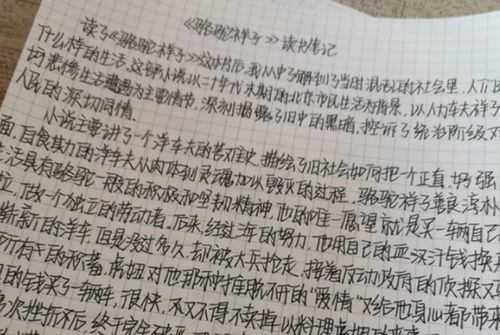 《骆驼祥子》读书笔记
读了《骆驼祥子》这本书后,我从中了解到了当时混乱的社会里,人们过
什么样的生活。这部小说以二十年代末期的北京市民生活为背景,以人力车夫祥子
坷悲惨生活遭遇为主要情节,深刻揭露了旧中的黑暗,控诉了统治阶级
人民的深切同情。
小说主要讲了一个洋车夫的苦难史,描绘了旧社会如何把一个正直、好强
面,自食其力的洋车夫从肉体到灵魂加以毁灭的过程。骆驼祥子善良淳朴
生活具有骆驼一般的积极和坚韧精神。他的唯一愿望就是买一辆自己
拉,做一个独立的劳动者。后来,经过三年的努力,他用自己的血汗钱换来
崭新的洋车,但是没过多久,却被大兵抢走,接着反动政府的侦探又
所有干的积蓄,虎妞对他那种推脱不开的“爱情”又给他身心都带
的钱买了一辆车,很快,不又不得不卖掉以料理
多次挫折后,终于